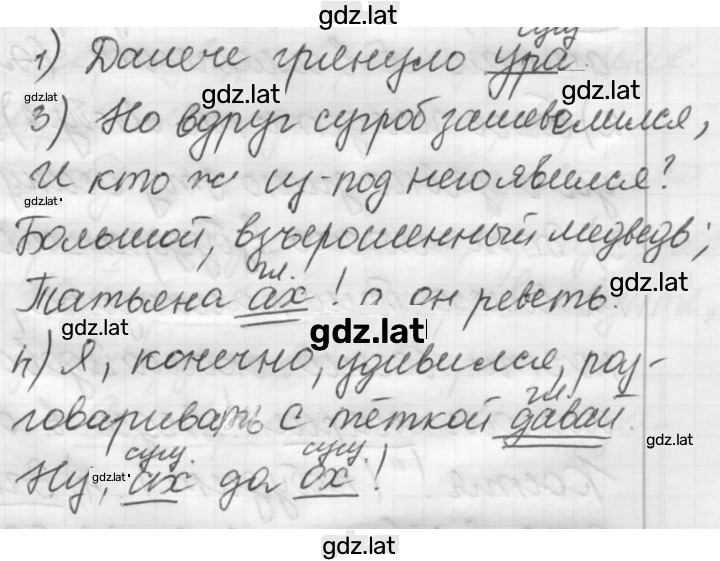 gdz.lat
сущ
1) Далече грянуло ура.
gdz.lat gdz.lat gdz.lat
3) Но вдруг сугроб зашевелился,
И кто ж из-под него явился?
gdz.lat
Большой, взъерошенный медведь;
гл.
Татьяна ах! а он реветь.
gdz.lat
gdz.lat gdz.lat
4) Я, конечно, удивился, раз-
говаривать с тёткой давай.
гл
gdz.lat
сущ. сущ.
Ну, ах да ох!
gdz.lat
gdz.lat